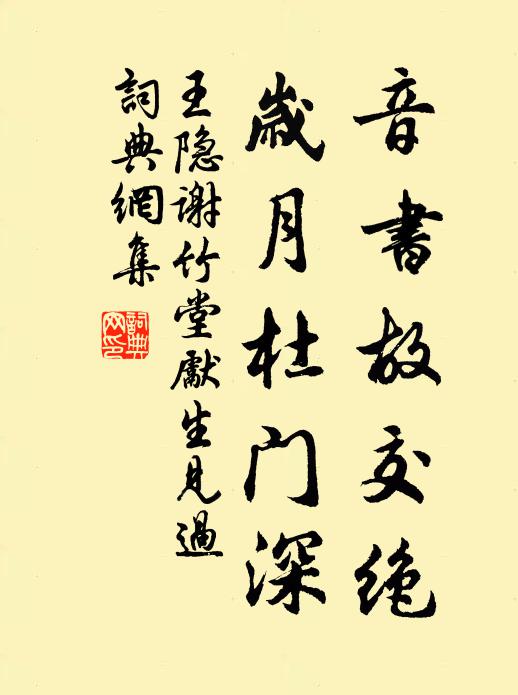 音書故交絶
歲月杜門深
王隐谢竹堂獻生見過
詞典網集
詞典网印